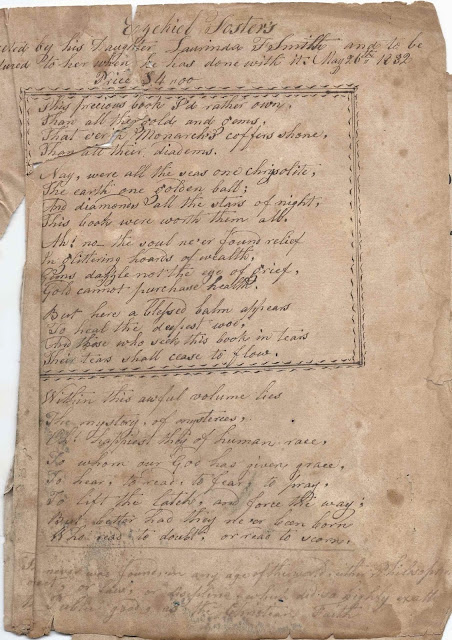 Ezekiel Foster's
by his Daughter Laurinda F Smith and to be
to her when he has done with it May 26th 1832
Price $4,00
This precious book I'd rather own,
Than all the golds and gems,
That ver'n Monarch's coffers shone,
Than all their diadems.
Nay, were all the seas one chrysolite,
The earth one golden ball;
And diamonds all the stars of night,
This book were worth them all
Ah! no the soul ne'er found relief
In glittering hoards of wealth,
Gems dazzle not the eye of grief,
Gold cannot purchase health.
But here a blessed balm appears
To heal the deepest woe,
And those who seek this book in tears
Their tears shall cease to flow.
Within this awful volume lies
The mystery, of mysteries,
happiest they of human race,
To whom our God has given grace,
To hear, to read, to fear, to pray,
To lift the latch, and force the way;
But, better had they never been born
Who read to doubt, or read to scorn,
never was found in any age of the world, either Philosophy
or law, or discipline which did so highly exalt
public good, as the Christian Faith